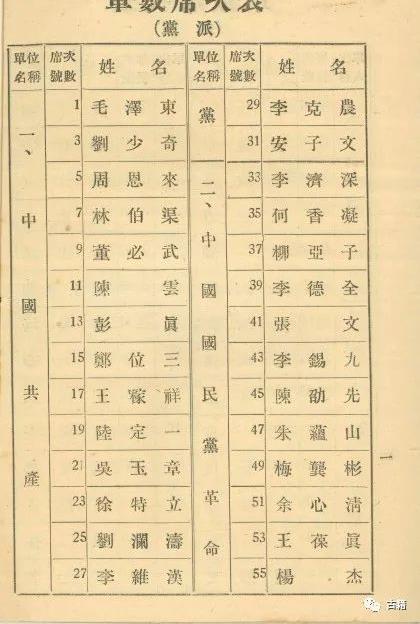 單數席次表
(黨派)
單位名稱
席次號數
姓名
一、中國共產
1 毛澤東
3 劉少奇
5 周恩來
7 林伯渠
9 董必武
11 陳雲
13 彭眞
15 鄭位三
17 王稼祥
19 陸定一
21 吳玉章
23 徐特立
25 劉瀾濤
27 李維漢
單位名稱
席次號數
姓名
黨
二、中國國民黨革命
29 李克農
31 安子文
33 李濟深
35 何香凝
37 柳亞子
39 李德全
41 張文
43 李錫九
45 陳劭先
47 朱蘊山
49 梅龔彬
51 余心清
53 王葆眞
55 楊杰
一
古籍